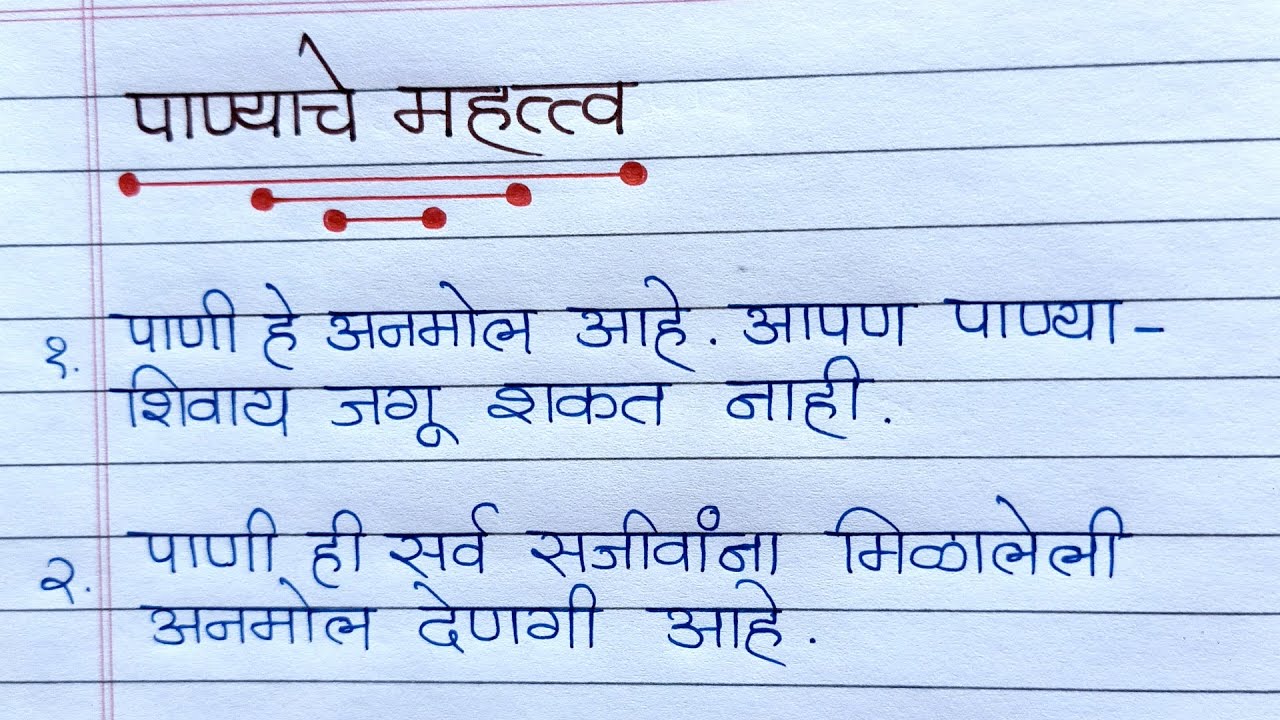 पाण्याचे महत्त्व
१. पाणी हे अनमोल आहे. आपण पाण्या-
शिवाय जगू शकत नाही.
२. पाणी ही सर्व सजीवांना मिळालेली
अनमोल देणगी आहे.